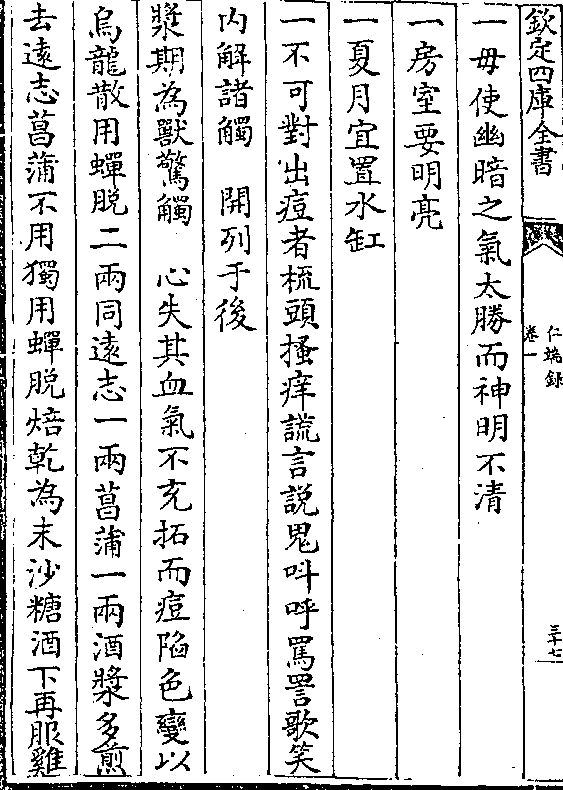 欽定四庫全書
仁端錄
卷一
三十七
一毋使幽暗之氣太勝而神明不清
一房室要明亮
一夏月宜置水缸
一不可對出痘者梳頭搔痒謊言説鬼叫呼罵詈歌笑
内解諸觸　開列于後
漿期為獸驚觸　心失其血氣不充拓而痘陷色變以
烏龍散用蟬脱二兩同逺志一兩菖蒲一兩酒漿多煎
去逺志菖蒲不用獨用蟬脱焙乾為末沙糖酒下再服雞